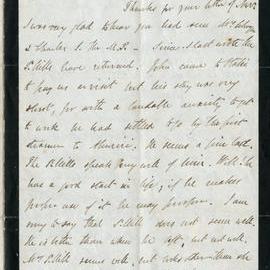 Thanks for your letter of
I was very glad to hear you had seen Mr
& Charles S. the M.D. - Since I last wrote the
have returned. John came to
to pay us a visit but his stay was very
short, for with a laudable anxiety to get
to work he had settled to go by the first
steamer to He seems a fine lad.
The speak very well of him. Well he
has a good start in life; if he makes
proper use of it he may prosper. I am
sorry to say that does not seem well.
He is better than when he left, but not well.
Mrs seems well, but older than she